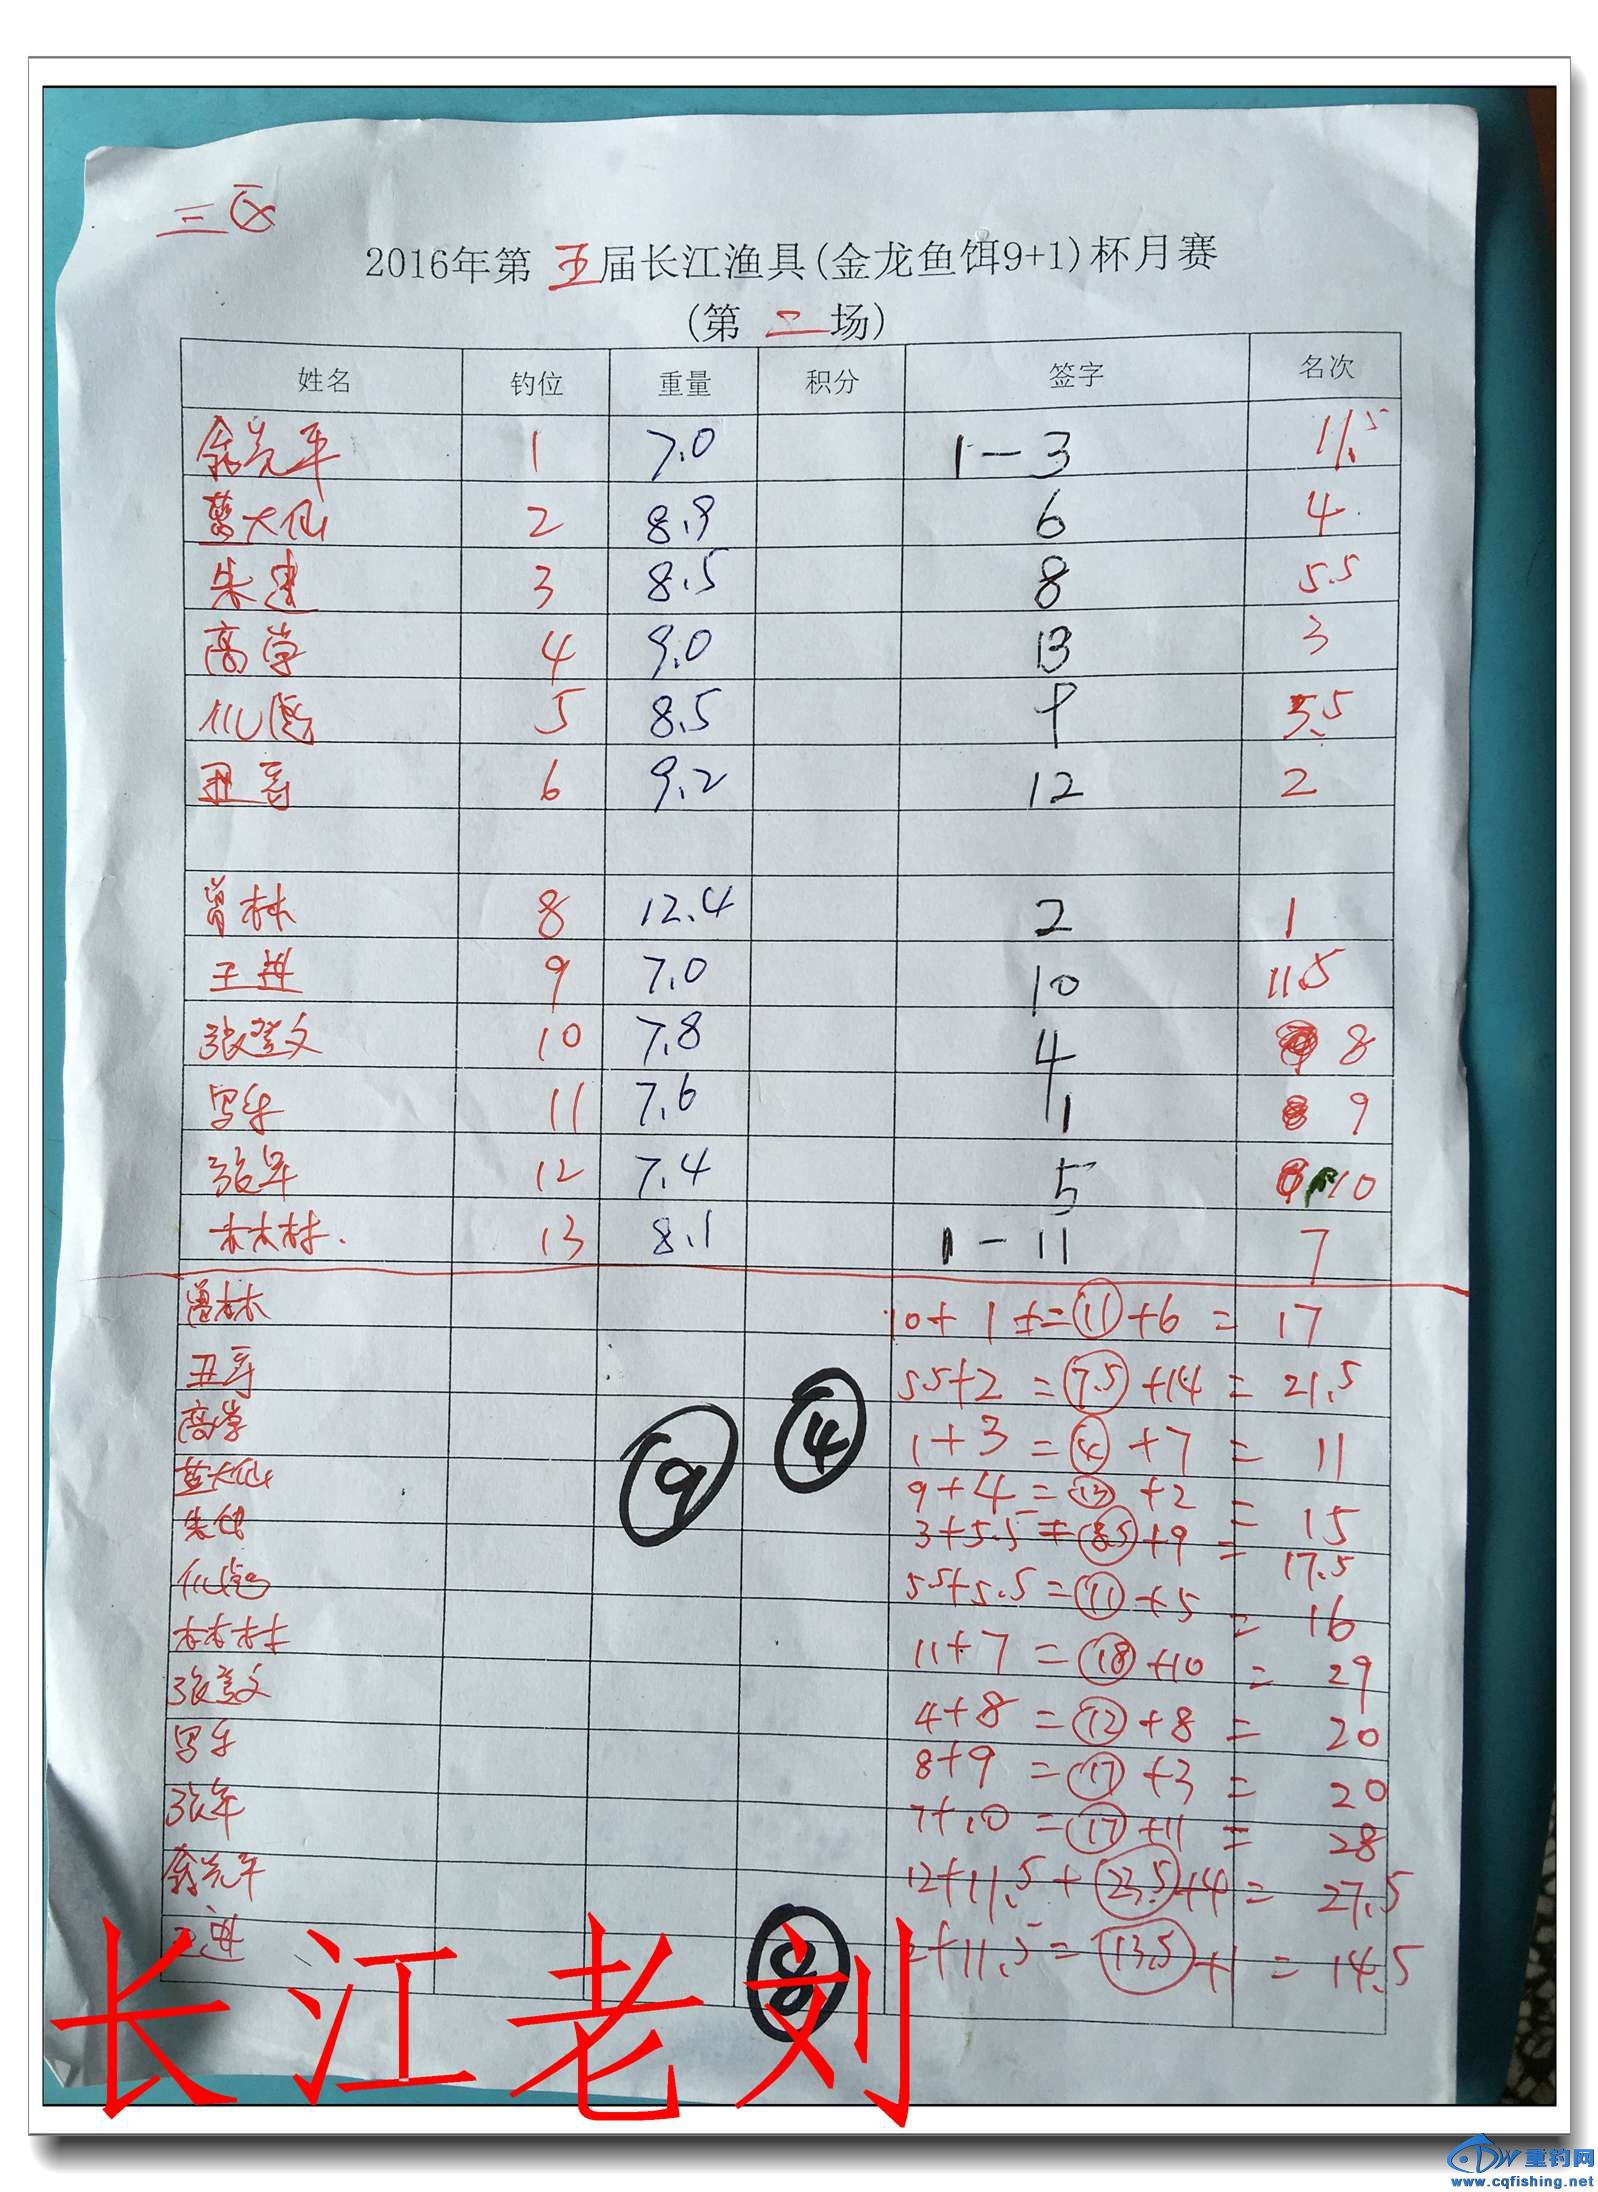 三区
2016年第 五 届长江渔具(金龙鱼饵9+1)杯月赛
(第 二 场)
姓名 钓位 重量 积分 签字 名次
余先平 1 7.0 1-3 11.5
蓝大仙 2 8.9 6 4
朱建 3 8.5 8 5.5
高学 4 9.0 13 3
5 8.5 9 5.5
丑哥 6 9.2 12 2
曾林 8 12.4 2 1
王进 9 7.0 10 11.5
张登文 10 7.8 4 8
11 7.6 11 9
张军 12 7.4 5 10
木木林. 13 8.1 1-11 7
曾林 10+1+=11+6=17
丑哥 5.5+2=7.5+14=21.5
高学 1+3=4+7=11
蓝大仙 9+4=13+2=15
朱建 3+5.5=8.5+9=17.5
5.5+5.5=11+5=16
木木林 11+7=18+10=29
张登文 4+8=12+8=20
8+9=17+3=20
张军 7+10=17+11=28
余先平 12+11.5+23.5+4=27.5
王进 2+11.5=13.5+1=14.5
9
4
8
长江老刘
重钓网
www.cqfishing.net